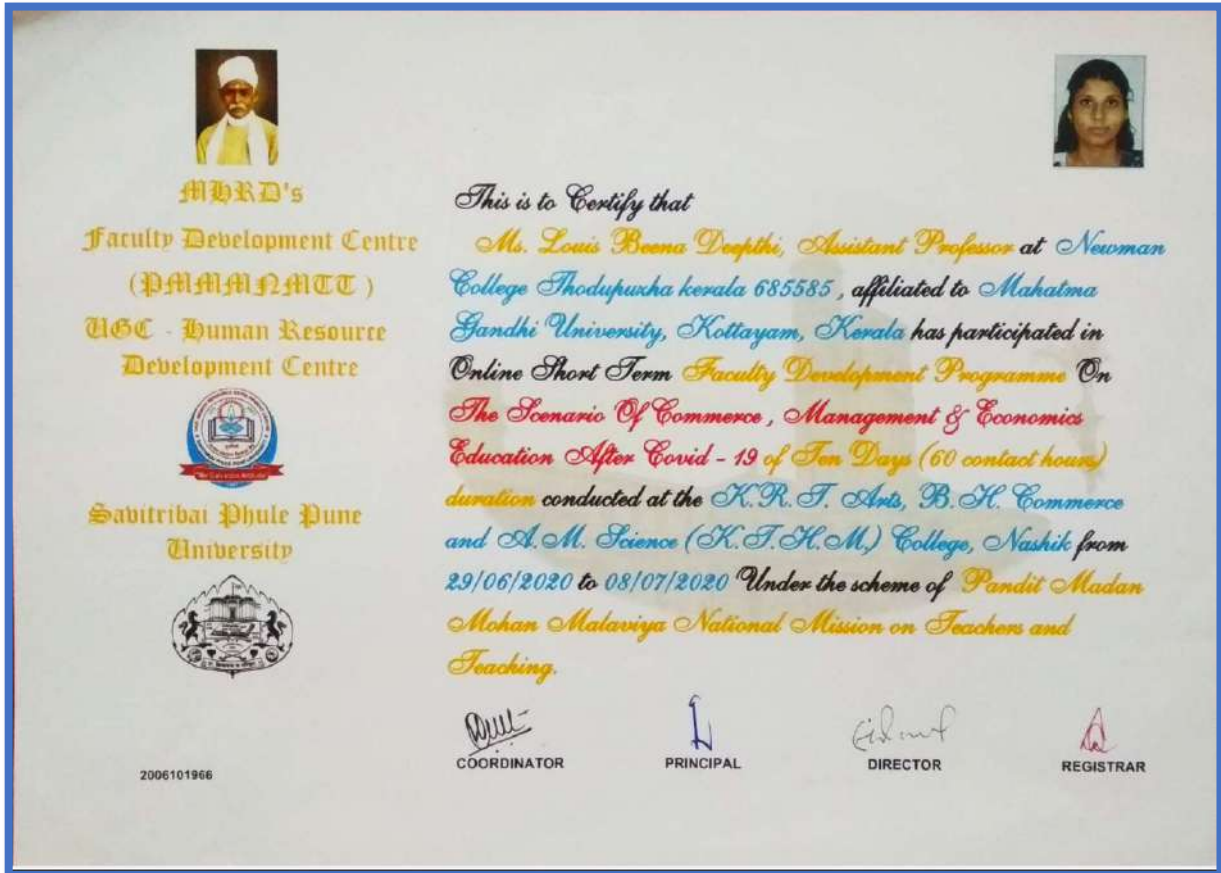 MHRD's
Faculty Development Centre
(PMMMNMTT)
UGC - Human Resource
Development Centre
Savitribai Phule Pune
University
2006101966
This is to Certify that
Ms. Louis Beena Deepthi, Assistant Professor at Newman
College Thodupuzha kerala 685585, affiliated to Mahatma
Gandhi University, Kottayam, Kerala has participated in
Online Short Term Faculty Development Programme On
The Scenario Of Commerce, Management & Economics
Education After Covid - 19 of Ten Days (60 contact hours)
duration conducted at the K.R.T. Arts, B.H. Commerce
and A.M. Science (K.T.H.M.) College, Nashik from
29/06/2020 to 08/07/2020 Under the scheme of Pandit Madan
Mohan Malaviya National Mission on Teachers and
Teaching.
COORDINATOR PRINCIPAL DIRECTOR REGISTRAR